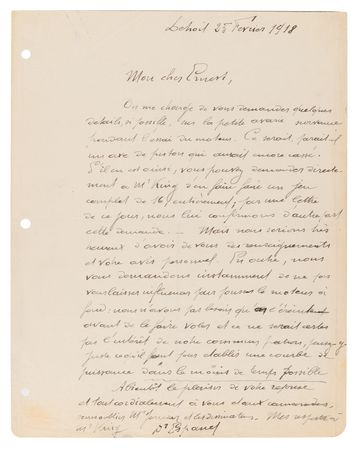 Detroit 25 Février 1918
Mon cher Ernest,
On me charge de vous demander quelques
détails, si possible, sur la petite avarie survenue
pendant l'essai du moteur. Ce serait, paraît-il
un axe de piston qui aurait encore cassé.
S'il en est ainsi, vous pouvez demander directe-
ment à Mr King d'en faire faire un jeu
complet de 16 entièrement; par une lettre
de ce jour, nous lui confirmons d'autre part
cette demande. — Mais nous serions très
heureux d'avoir de vous des renseignements
et votre avis personnel. En outre, nous
vous demandons instamment de ne pas
vous laisser influencer pour pousser le moteur à
fond: nous n'avons pas besoin qu'on l'éreinte
avant de le faire voler et ce ne serait certes
pas l'intérêt de notre commun patron, puisqu'il
juste cordial pour établir une courbe de
puissance dans le moins de temps possible
A bientôt le plaisir de votre réponse
et tout cordialement à vous et aux camarades,
sans oublier Mr et les dessinateurs. Mes respects à
Mr King